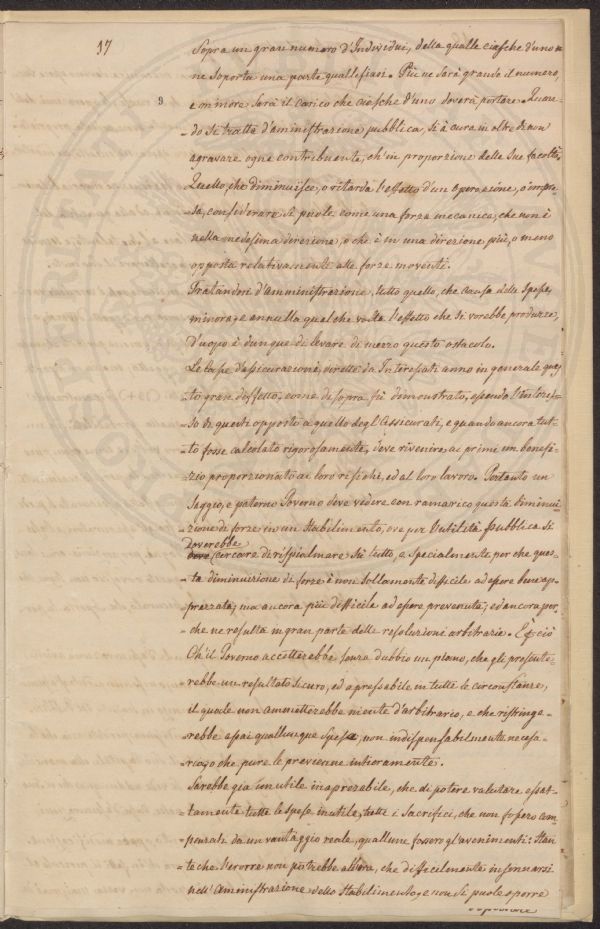 17
sopra un gran numero d'Individui, della qualle ciasche d'uno
ne soporta una parte qualle siasi. Più ne sarà grande il numero,
9.
e minore sarà il carico che ciasche d'uno doverà portare. Quan-
-do si tratta d'aministrazione pubblica, si à cura in oltre di non
agravare ogni contribuente, ch'in proporzione delle sue facoltà,
Quello, che diminuisce, o ritarda l'effetto d'un operazione, o impre-
sa, considerare si puole come una forza mecanica, che non è
nella medesima direzione, o che è in una direzione più, o meno
opposta relativamente alle forze moventi.
Tratandosi d'amministrazione, tutto quello, che causa delle spese,
minora, e annulla qualche volta l'effetto che si vorebbe produrre,
D'uopo è dunque di levare di mezzo questo ostacolo.
Le case d'assicurazioni, dirette da Interessati anno in generale ques-
-to gran diffetto, come di sopra fù dimonstrato, essendo l'interes-
-so di questi opposto a quello degl'Assicurati, e quando ancora tut-
-to fosse calcolato rigorosamente, deve rivenire ai primi un benefi-
-zio proporzionato ai loro risichi, ed al loro lavoro. Pertanto un
saggio, e paterno Governo deve vedere con ramarico questa diminui-
-zione di forze in un stabilimento, ove per l'utilità pubblica si
doverebbe
cercare di rispialmare sù tutto, e specialmente perche ques-
-ta diminuizione di forze è non sollamente difficile ad essere bene ap-
-prezzata; ma ancora più difficile ad essere prevenuta; ed ancora per-
-che ne resulta in gran parte delle resoluzioni arbitrarie. E perciò
Ch'il Governo accetterebbe senza dubbio un piano, che gli presente-
-rebbe un resultato sicuro, ed apressabile in tutte le circonstanze,
il quale non ammetterebbe niente d'arbitrario, e che ristringe-
-rebbe assai quallunque spesa, non indispensabilmente necesa-
-ria, o che pure le prevenne intieramente.
Sarebbe già un utile inaprezabile, che di potere valutare esat-
-tamente tutte le spese inutile, tutti i sacrifici, che non fossero com-
-pensati da un vantaggio reale, quallune fossero gl'avenimenti: stan-
-te che l'errore non potrebbe allora, che difficilmente insennarsi
nell'Amministrazione dello stabilimento, e non si puole oporre